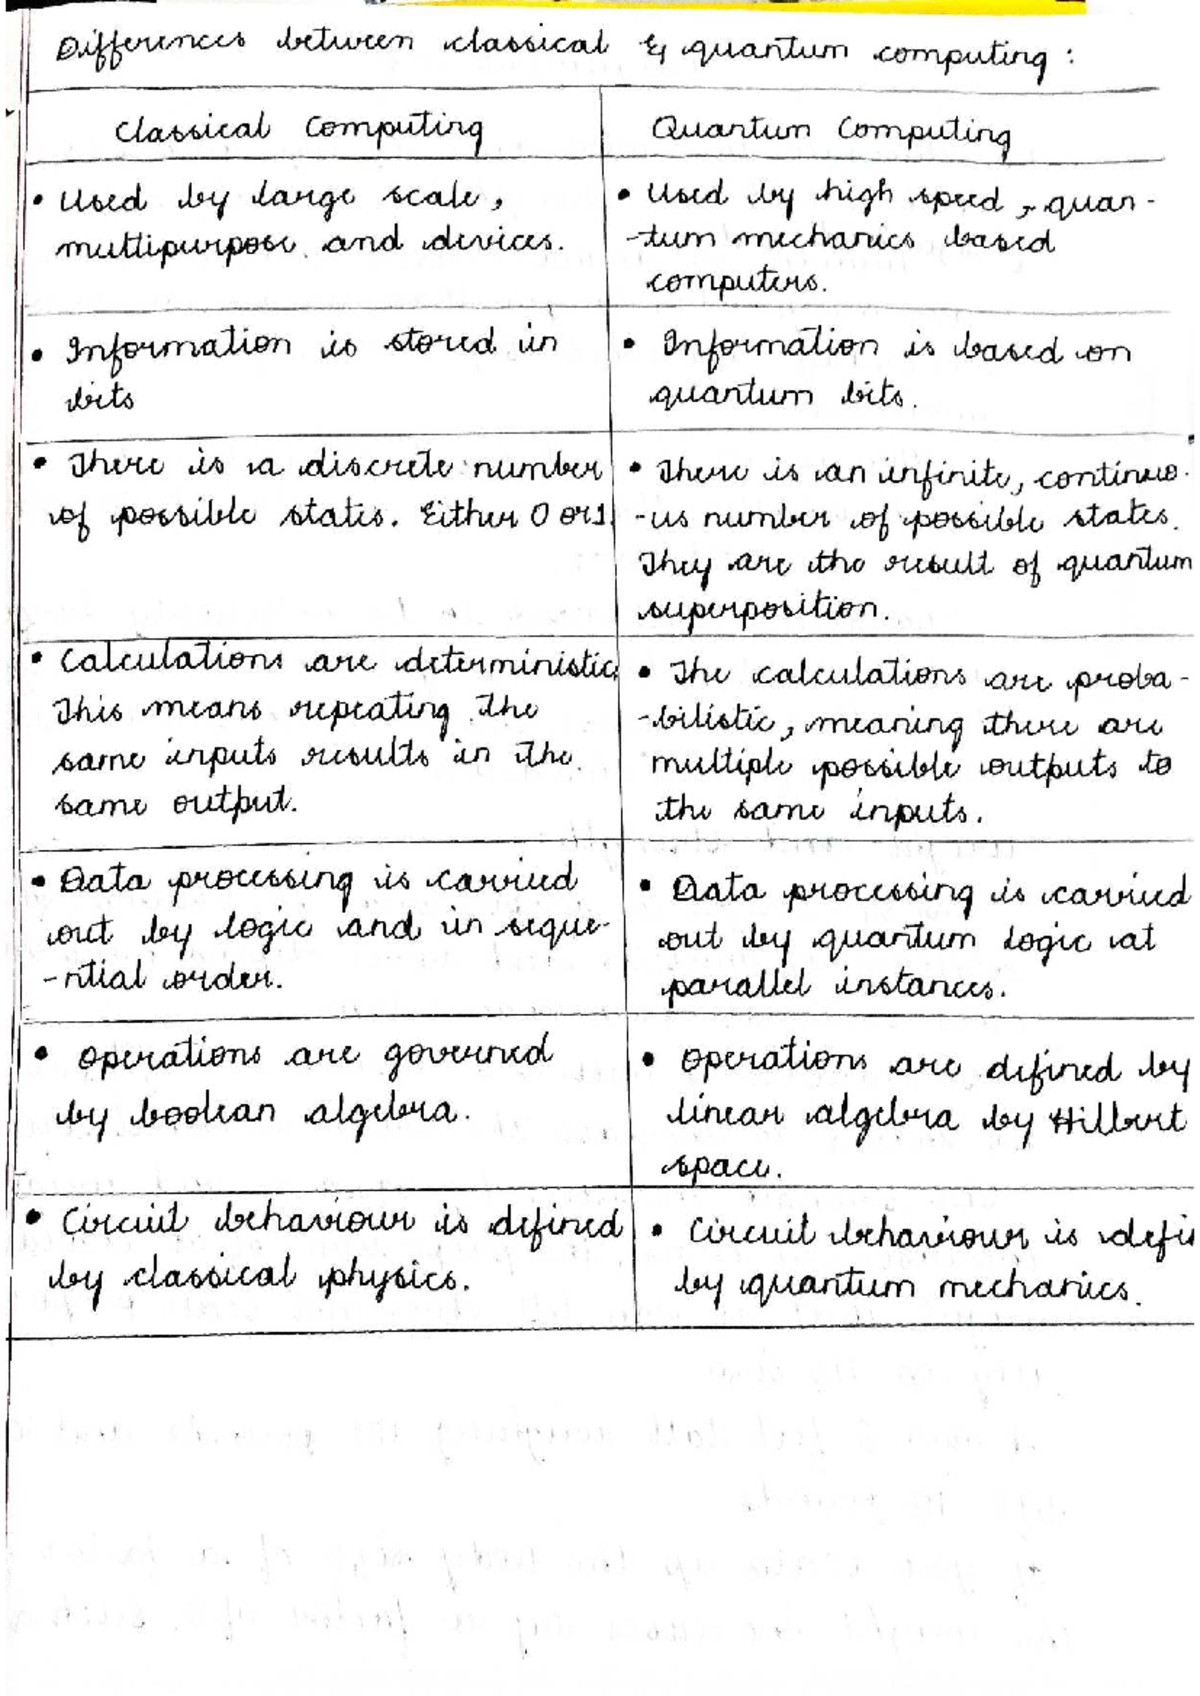 Differences between classical & quantum computing :
Classical Computing
Quantum Computing
• Used by large scale,
multipurpose and devices.
• Used by high speed, quan-
-tum mechanics based
computers.
• Information is stored in
bits
• Information is based on
quantum bits.
• There is a discrete number
of possible states. Either 0 or 1.
• There is an infinite, continuo-
-us number of possible states.
They are the result of quantum
superposition.
• Calculations are deterministic.
This means repeating the
same inputs results in the
same output.
• The calculations are proba-
-bilistic, meaning there are
multiple possible outputs to
the same inputs.
• Data processing is carried
out by logic and in seque-
-ntial order.
• Data processing is carried
out by quantum logic at
parallel instances.
• Operations are governed
by boolean algebra.
• Operations are defined by
linear algebra by Hilbert
space.
• Circuit behaviour is defined
by classical physics.
• Circuit behaviour is defi
by quantum mechanics.